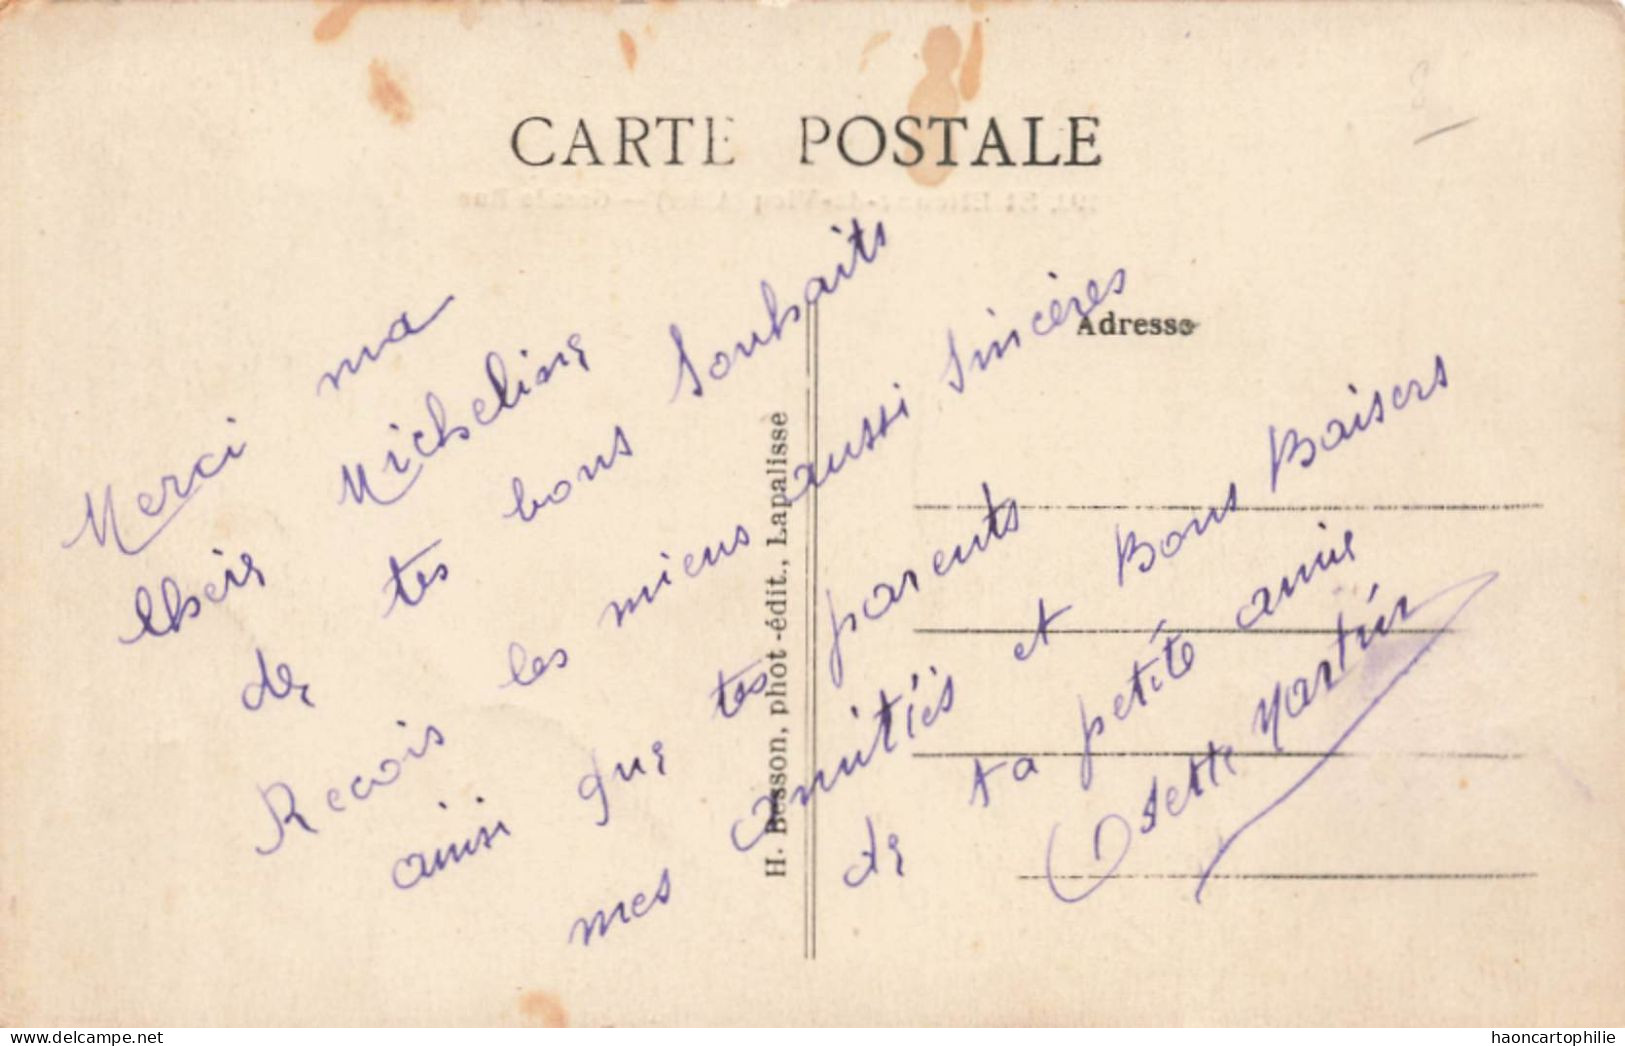 CARTE POSTALE
Adresse
H. Besson, phot-édit., Lapalisse
Merci ma
chère Micheline
de tes bons Souhaits
Recois les miens aussi Sincères
ainsi que tes parents
mes amitiés et Bons Baisers
de ta petite amie
Odette Martin
delcampe.net
haoncartophilie